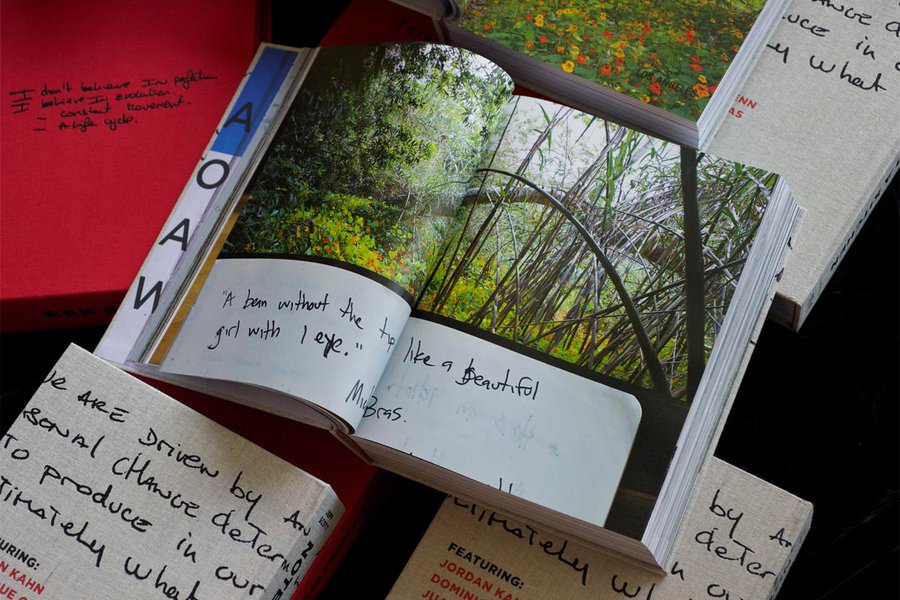 I don't believe In
I believe In Evolution.
= constant movement
= A life cycle.
A O A W
"A bean without the tip like a Beautiful
girl with 1 eye."
Bras.
CHANGE d
UCE in
y what
ENN
AS
ARE DRIVEN by An
SONAL CHANGE deter
TO PRODUCE in OUR
timately what
URING:
N KAHN
by An
deter
timately wh in our
FEATURING:
JORDAN KA
DOMINI
JU